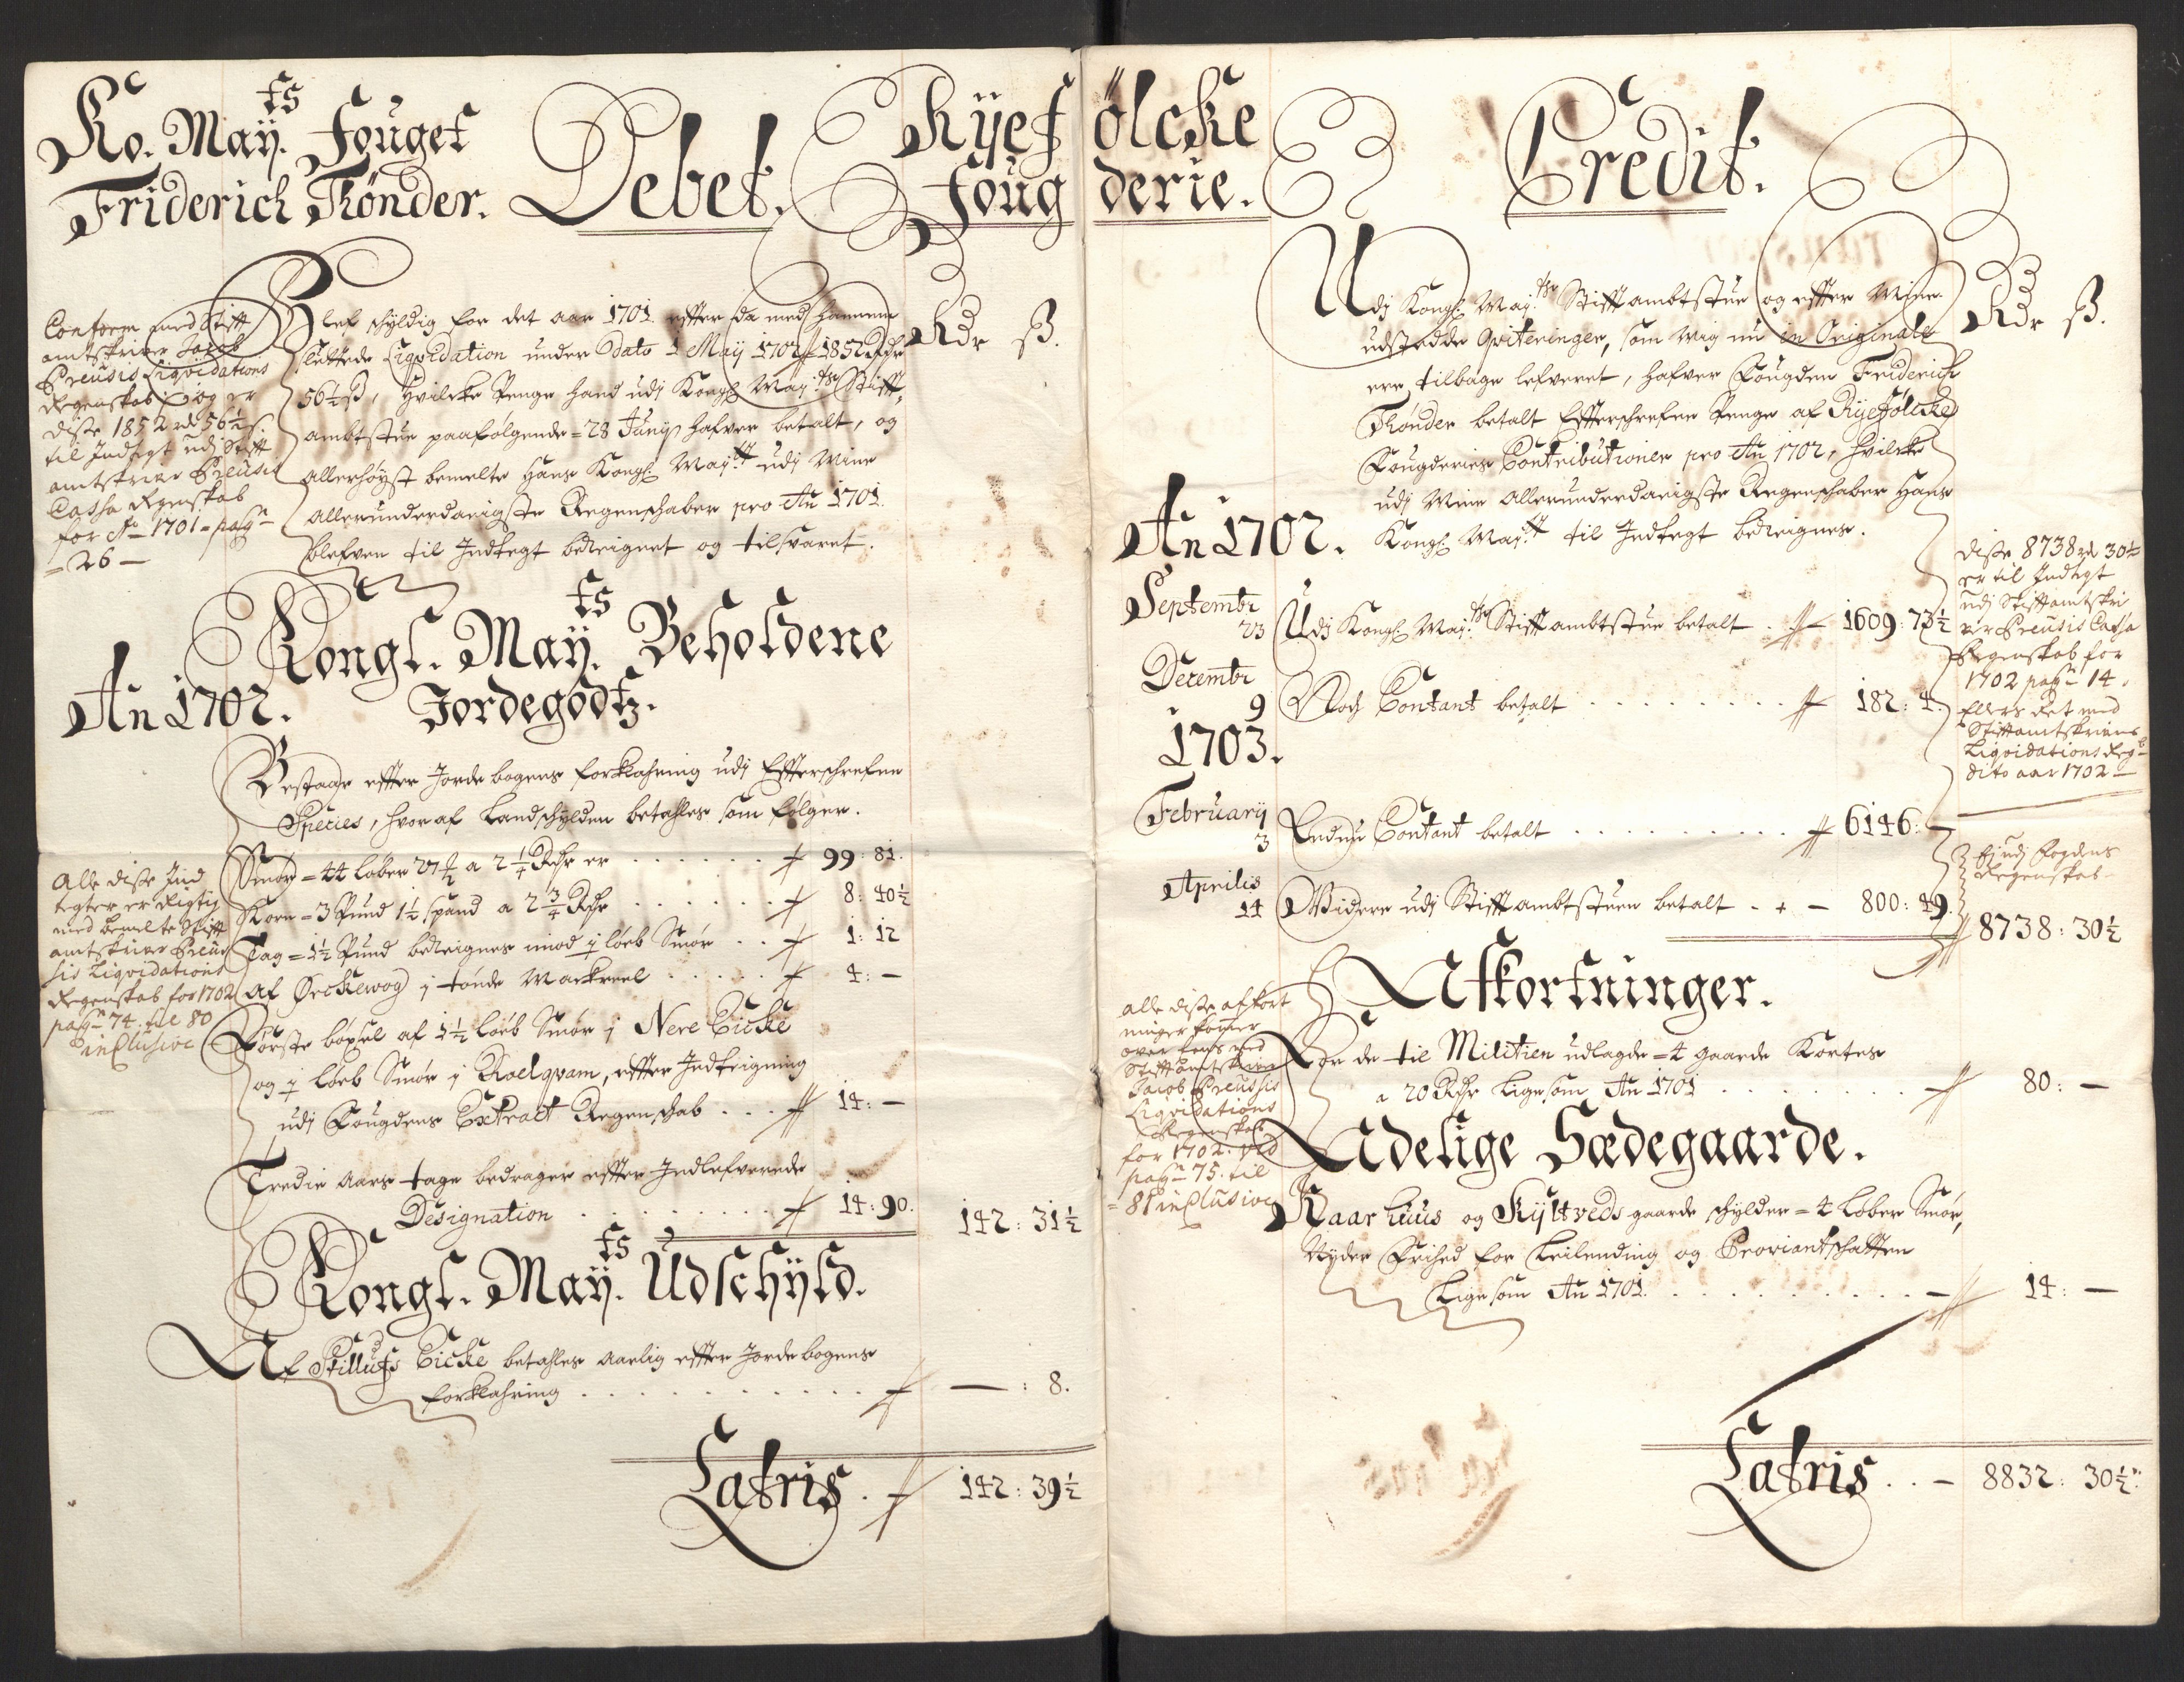 Ko. May.ts Fouget
Friderich Thønder. Debet. Ryef
Foug
Rdr ß.
Conform med Stift
amtskrifver Jacob
Preusis Liqvidations
Regenskab og er
diße 1852 rd 56½ s.
til Indtegt udj Stift
amtskrifver Preusis
Cassa Regenskab
for Ao 1701 = pag
= 26 —
Blef schyldig for det aar 1701 effter da med hannem
sluttede Liqvidation under Dato 1 May 1702 — 1852 Rdr
56½ ß, hvilcke Penge hand udj Kongl. May.ts Stifft
ambtstue paafølgende = 28 Juny hafver betalt, og
allerhøyst bemelte hans Kongl. May.tt udj Mine
allerunderdanigste Regenschaber pro An 1701
blefven til Indtegt beregnet og tilsvaret.
Kongl. May.ts Beholdene
An 1702. Jordegodtz.
Bestaar effter Jordebogens forklahring udj Effterschrefne
Species, hvoraf Landschylden betahles som følger.
Alle diße Ind
tegter er Rigtig
med bemelte Stift
amtskrifver Preu
sis Liqvidations
Regenskab for 1702
pag 74. til 80
inclusive
Smør = 44 løber 27½ a 2¼ Rdr er . . . . . . 99: 81.
Korn = 3 Pund 1½ spand a 2¾ Rdr . . . . . . 8: 40½
Tag = 1½ Pund beregnes imod ½ løeb Smør . . 1: 12
Af Ørckewog j tønde Mackreel . . . . . 4: —
Første bøxel af 1½ løeb Smør j Nere Eicke
og ½ løeb Smør j Roelqvam, effter Indteigning
udj Fougdens Extract Regenschab . . . 14: —
Tredie aars tage bedrager effter Indlefverede
Designation . . . . . . . . 14: 90. 142: 31½
Kongl. May.ts Udschyld.
Af Stillufs Eicke betahles aarlig effter Jordebogens
forklahring . . . . . . . . . . . — : 8.
Latris . 142: 39½
ölcke
derie. Credit.
Rdr ß.
Udj Kongl. May.ts Stifftambtstue og effter Mine
udstædde qviteringer, som mig nu in Originale
ere tilbage lefveret, hafver Fougden Friderich
Thønder betalt Effterschrefne Penge af Ryefölcke
Fougderies Contributioner pro An 1702, hvilcke
udj Mine allerunderdanigste Regenschaber hans
An 1702. Kongl. May.tt til Indtegt beregnes.
Septembr
23 Udj Kongl. May.ts Stifftambtstue betalt . — 1609: 73½
Decembr
9 Noch Contant betalt . . . . . . . . 182: 4.
1703.
February
3 Endnu Contant betalt . . . . . . . . . . 6146: —
Aprilis
14 Widere udj Stifftambtstuen betalt . . — 800: 49.
8738: 30½
Diße 8738 rd 30½
er til Indtegt
udj Stiftamtskri
ver Preusis Cassa
Regenskab for
1702 pag 14.
Ellers det med
Stiftamtskrivers
Liqvidations Reg
dito aar 1702 —
Ej udj fogdens
Regenskab
Afkortninger.
alle diße afkort
ninger komer
over eens med
Stiftamtskriver
Jacob Preusis
Liqvidations
Regenskab
for 1702. ved
pag 75. til
= 81 inclusive
For de til Militien udlagde = 4 gaarde Kortes
a 20 Rdr ligesom An 1701 . . . . . . 80: —
Adelige Sædegaarde.
Kaarhuus og Hylveds gaarde schylder = 4 løber Smør,
Nyder Frihed for Leilending og Proviantschatten
ligesom An 1701 . . . . . . . . . — 14: —
Latris . . — 8832: 30½